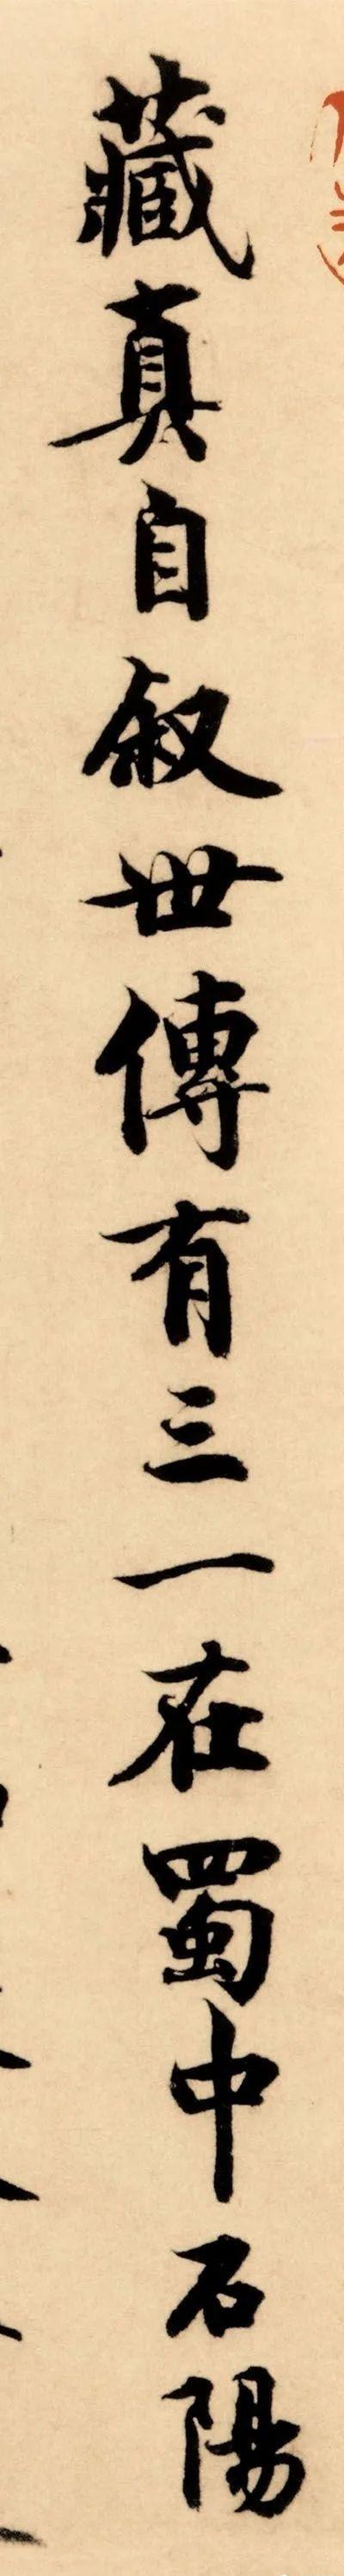 藏真自叙世傳有三一在蜀中石陽